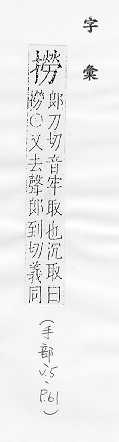 字彙
撈
郎刀切音牢取也沉取曰
撈○又去聲郎到切義同
(手部 v.5 P.61)